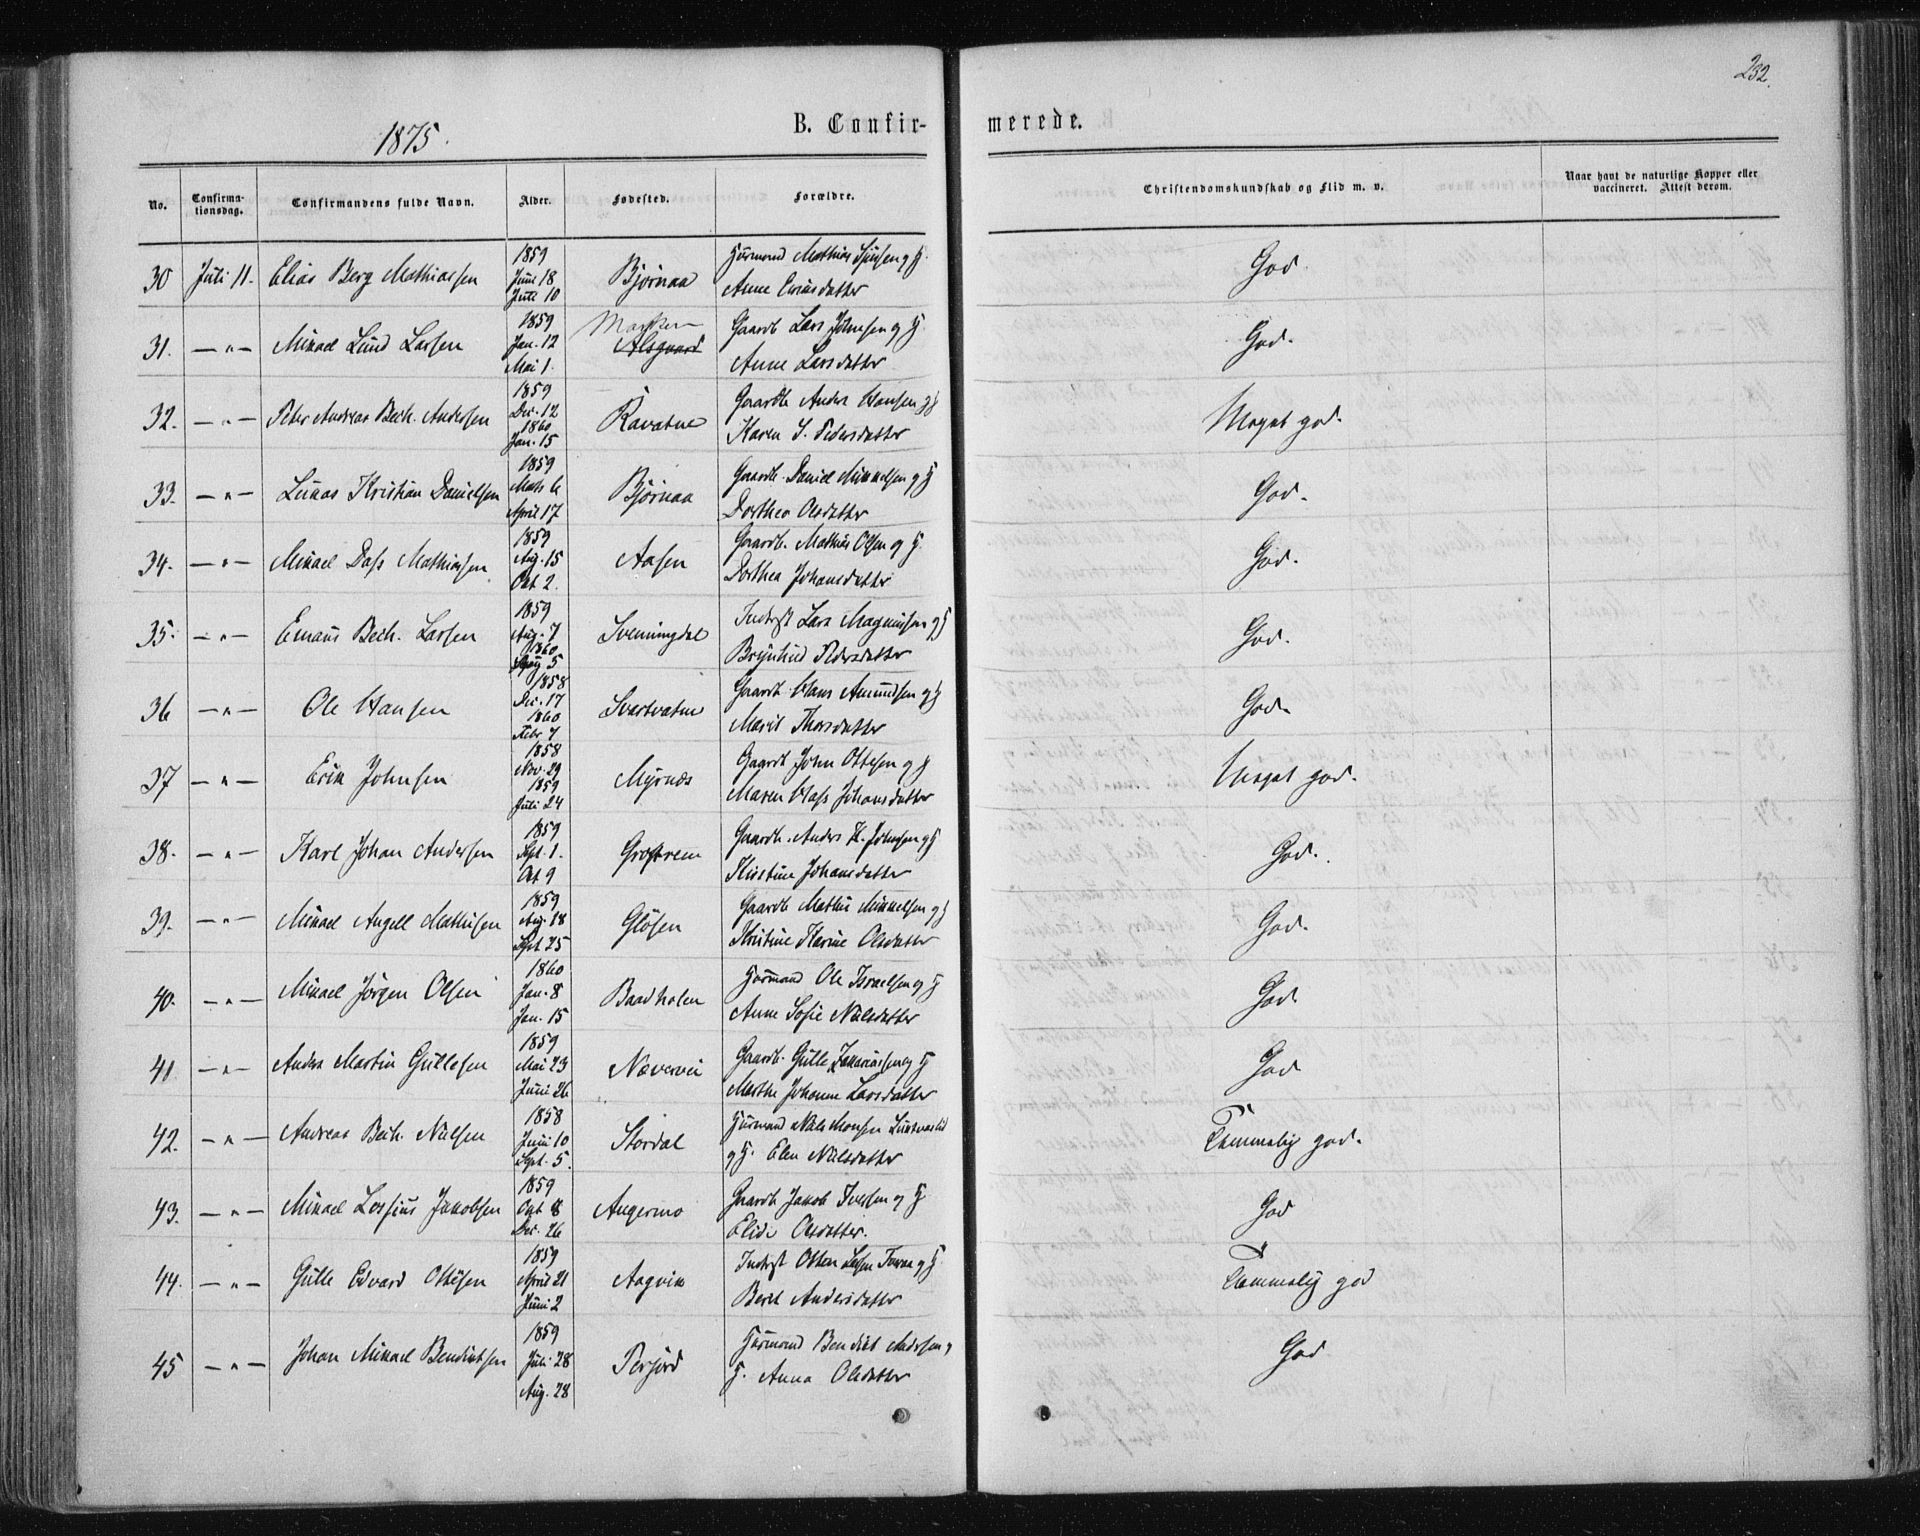 232.
1875.
B. Confir- merede.
No. Confirma-tionsdag. Confirmandens fulde Navn. Alder. Fødested. Forældre. Christendomskundskab og Flid m. v. Naar havt de naturlige Kopper eller vaccineret. Attest derom.
1859
30 Juli 11. Elias Berg Mathiassen Juni 18 Bjørnaa God.
Juli 10 Anne
1859 Gaardb. Lars Johnsen og H.
31. —"— Mikael Lund Larsen Jan. 12 Alsgaard God.
Mai 1. Anne Larsdatter
1859 Gaardb. Anders Hansen og H
32. —"— Peter Andreas Bech. Andersen Dec. 12 Ravatne Meget god.
1860
Jan. 15 Karen S. Pedersdatter
1859 Gaardb. Daniel Mikkelsen og H
33. —"— Lukas Kristian Danielsen Bjørnaa God.
April 17 Dorthea Olsdatter
1859 Gaardb. Mathias Olsen og H.
34. —"— Mikael Dass Mathiassen Aug. 15 Aasen God.
Okt 2. Dorthea Johansdatter
1859 Inderst Lars Magnusen og H
35. —"— Emaus Bech. Larsen Aug. 7 Svenningdal God.
1860
5 Brynhild Pedersdatter
1858 Gaardb. Hans Amundsen og H
36 —"— Ole Hansen Dec. 17 Svartvatne God.
1860
Febr 7 Marit Thorsdatter
1858 Gaardb John Ottesen og H
37 —"— Erik Johnsen Nov. 29 Myrnæs Meget god.
1859
Juli 24 Maren Hass Johansdatter
1859 Gaardb. Anders K. Johnsen og H
38. —"— Karl Johan Andersen Sept. 1. God.
Okt 9 Kristine Johansdatter
1859 Gaardb Mathis Mikkelsen og H
39. —"— Mikael Angell Mathisen Aug. 18 Gløsen God.
Sept. 25 Kristine Karine Olsdatter
1860 Husmand Ole Israelsen og H
40. —"— Mikael Jørgen Olsen Jan. 8 Baadholen God.
Jan. 15 Anne Sofie Nielsdatter
1859 Gaardb. Gulle Zakariassen og H
41 —"— Anders Martin Gullesen Mai 23 Nævervei God
Juni 26 Marthe Johanne Larsdatter
1858 Husmand Niels Monsen
42. —"— Andreas Bech. Nielsen Juni 10 Stordal Temmelig god.
Sept. 5. og H. Elen Nielsdatter
1859 Gaardb Jakob Iversen og H
43. —"— Mikael Lossius Jakobsen Okt 8 Angermo God
Dec. 26 Elida Olsdatter.
1859 Inderst
44. —"— Gulle Edvard Ottesen April 21 Aagvik Temmelig god
Juni 2 Beret Andersdatter
1859 Husmand Bendikt Andersen og
45 —"— Johan Mikael Bendiktsen Juli 28 God
Aug. 28 H. Anna Olsdatter